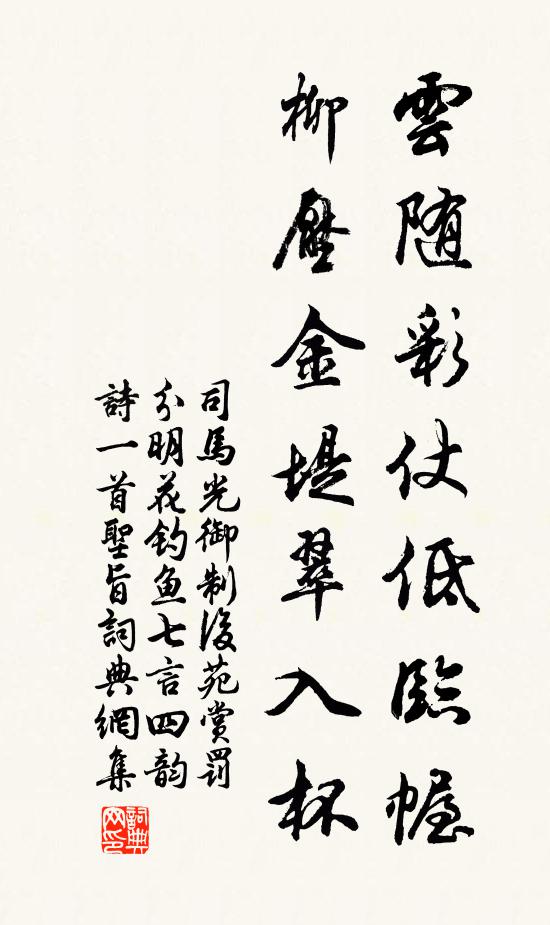 雲随彩仗低臨幄
柳壓金堤翠入杯
司馬光御制後苑賞罰
分明花釣鱼七言四韵
詩一首聖旨詞典網集
詞典网印